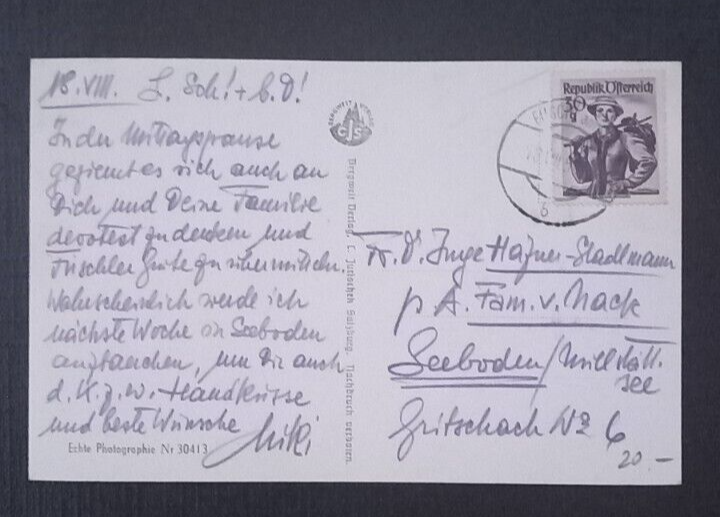 18. VIII. L. Sch! + b. D!
In der Mittagspause
geziemt es sich auch an
Dich und Deine Familie
devotest zu denken und
Fuschler Grüße zu übermitteln.
Wahrscheinlich werde ich
nächste Woche in Seeboden
auftauchen, um Dir auch
d. K. z. w. Handküsse
und beste Wünsche
Miki
Echte Photographie Nr 30413
BERGWELT VERLAG
CJS
Bergwelt Verlag, C. Jurischek Salzburg. Nachdruck verboten.
Republik Österreich
30 g
Fr. D. Inge Hafner-Stadlmann
p A. Fam. v. Mack
Seeboden / Millstätt.
see
Gritschach Nr 6
20.—